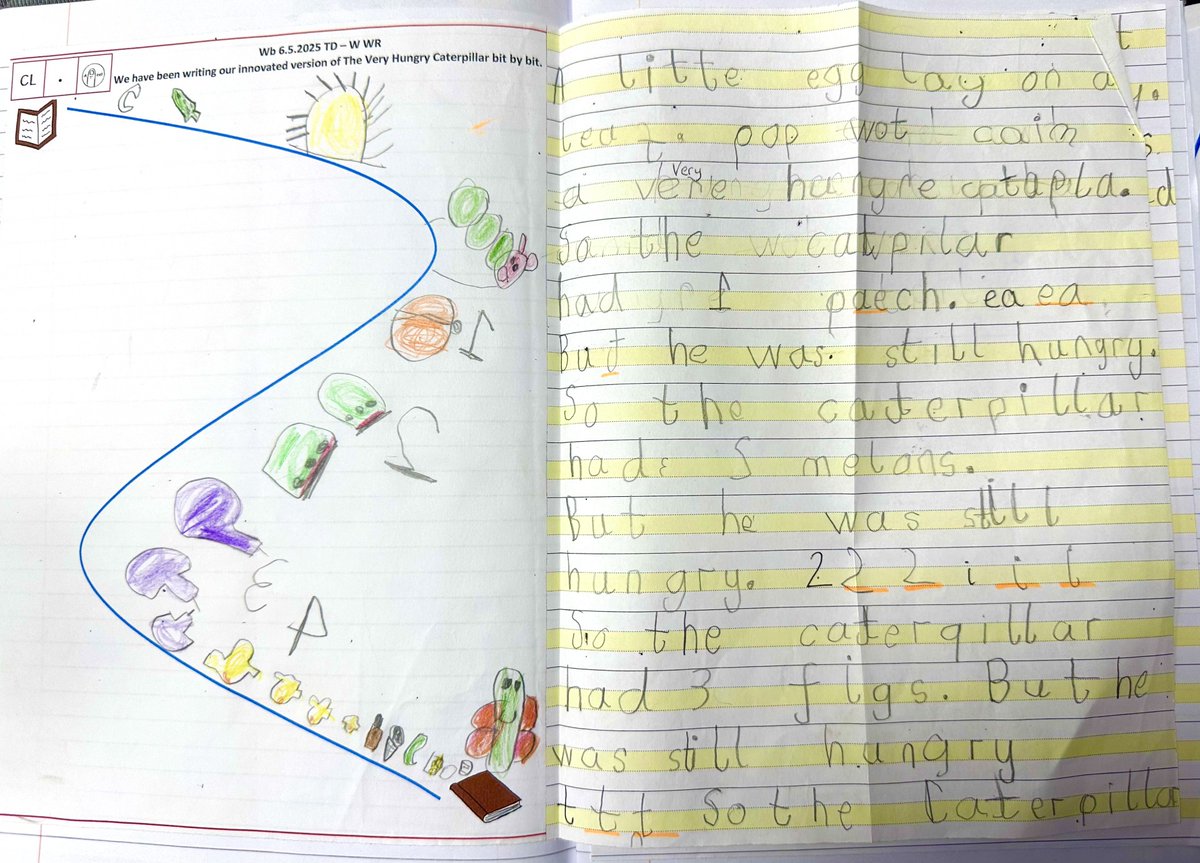 Wb 6.5.2025 TD – W WR
CL
We have been writing our innovated version of The Very Hungry Caterpillar bit by bit.
1
2
A litte egg lay on a
pop wot caim
Very
a vere hungre catapla.
So the catpilar
had 1 paech. ea ea
But he was. still hungry.
So the caterpillar
had 5 melons.
But he was still
hungry. 2 2 2 i i i
So the caterqillar
had 3 figs. But he
was still hungry
t t t So the Caterpilla